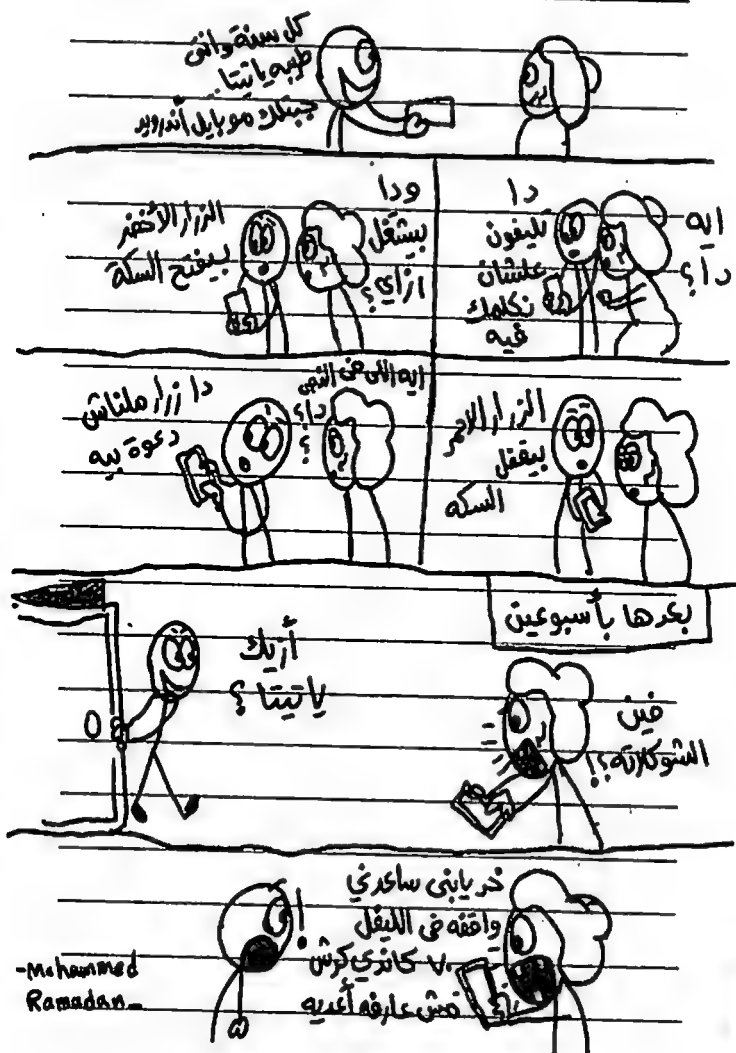 كل سنة وانتي
طيبه يا تيتا..
جبتلك موبايل أندرويد
ايه
دا؟
دا
تليفون
علشان
نكلمك
فيه
ودا
بيشتغل
ازاي؟
الزرار الأخضر
بيفتح السكة
الزرار الاحمر
بيقفل
السكه
ايه اللي في النص
دا؟
؟
دا زرار ملناش
دعوة بيه
بعدها بأسبوعين
أزيك
يا تيتا؟
فين
الشوكلاته؟!
خد يابني ساعدني
واقفه في الليفل
٧٠ كاندي كرش
مش عارفه أعديه
!
-Mohammed
Ramadan-